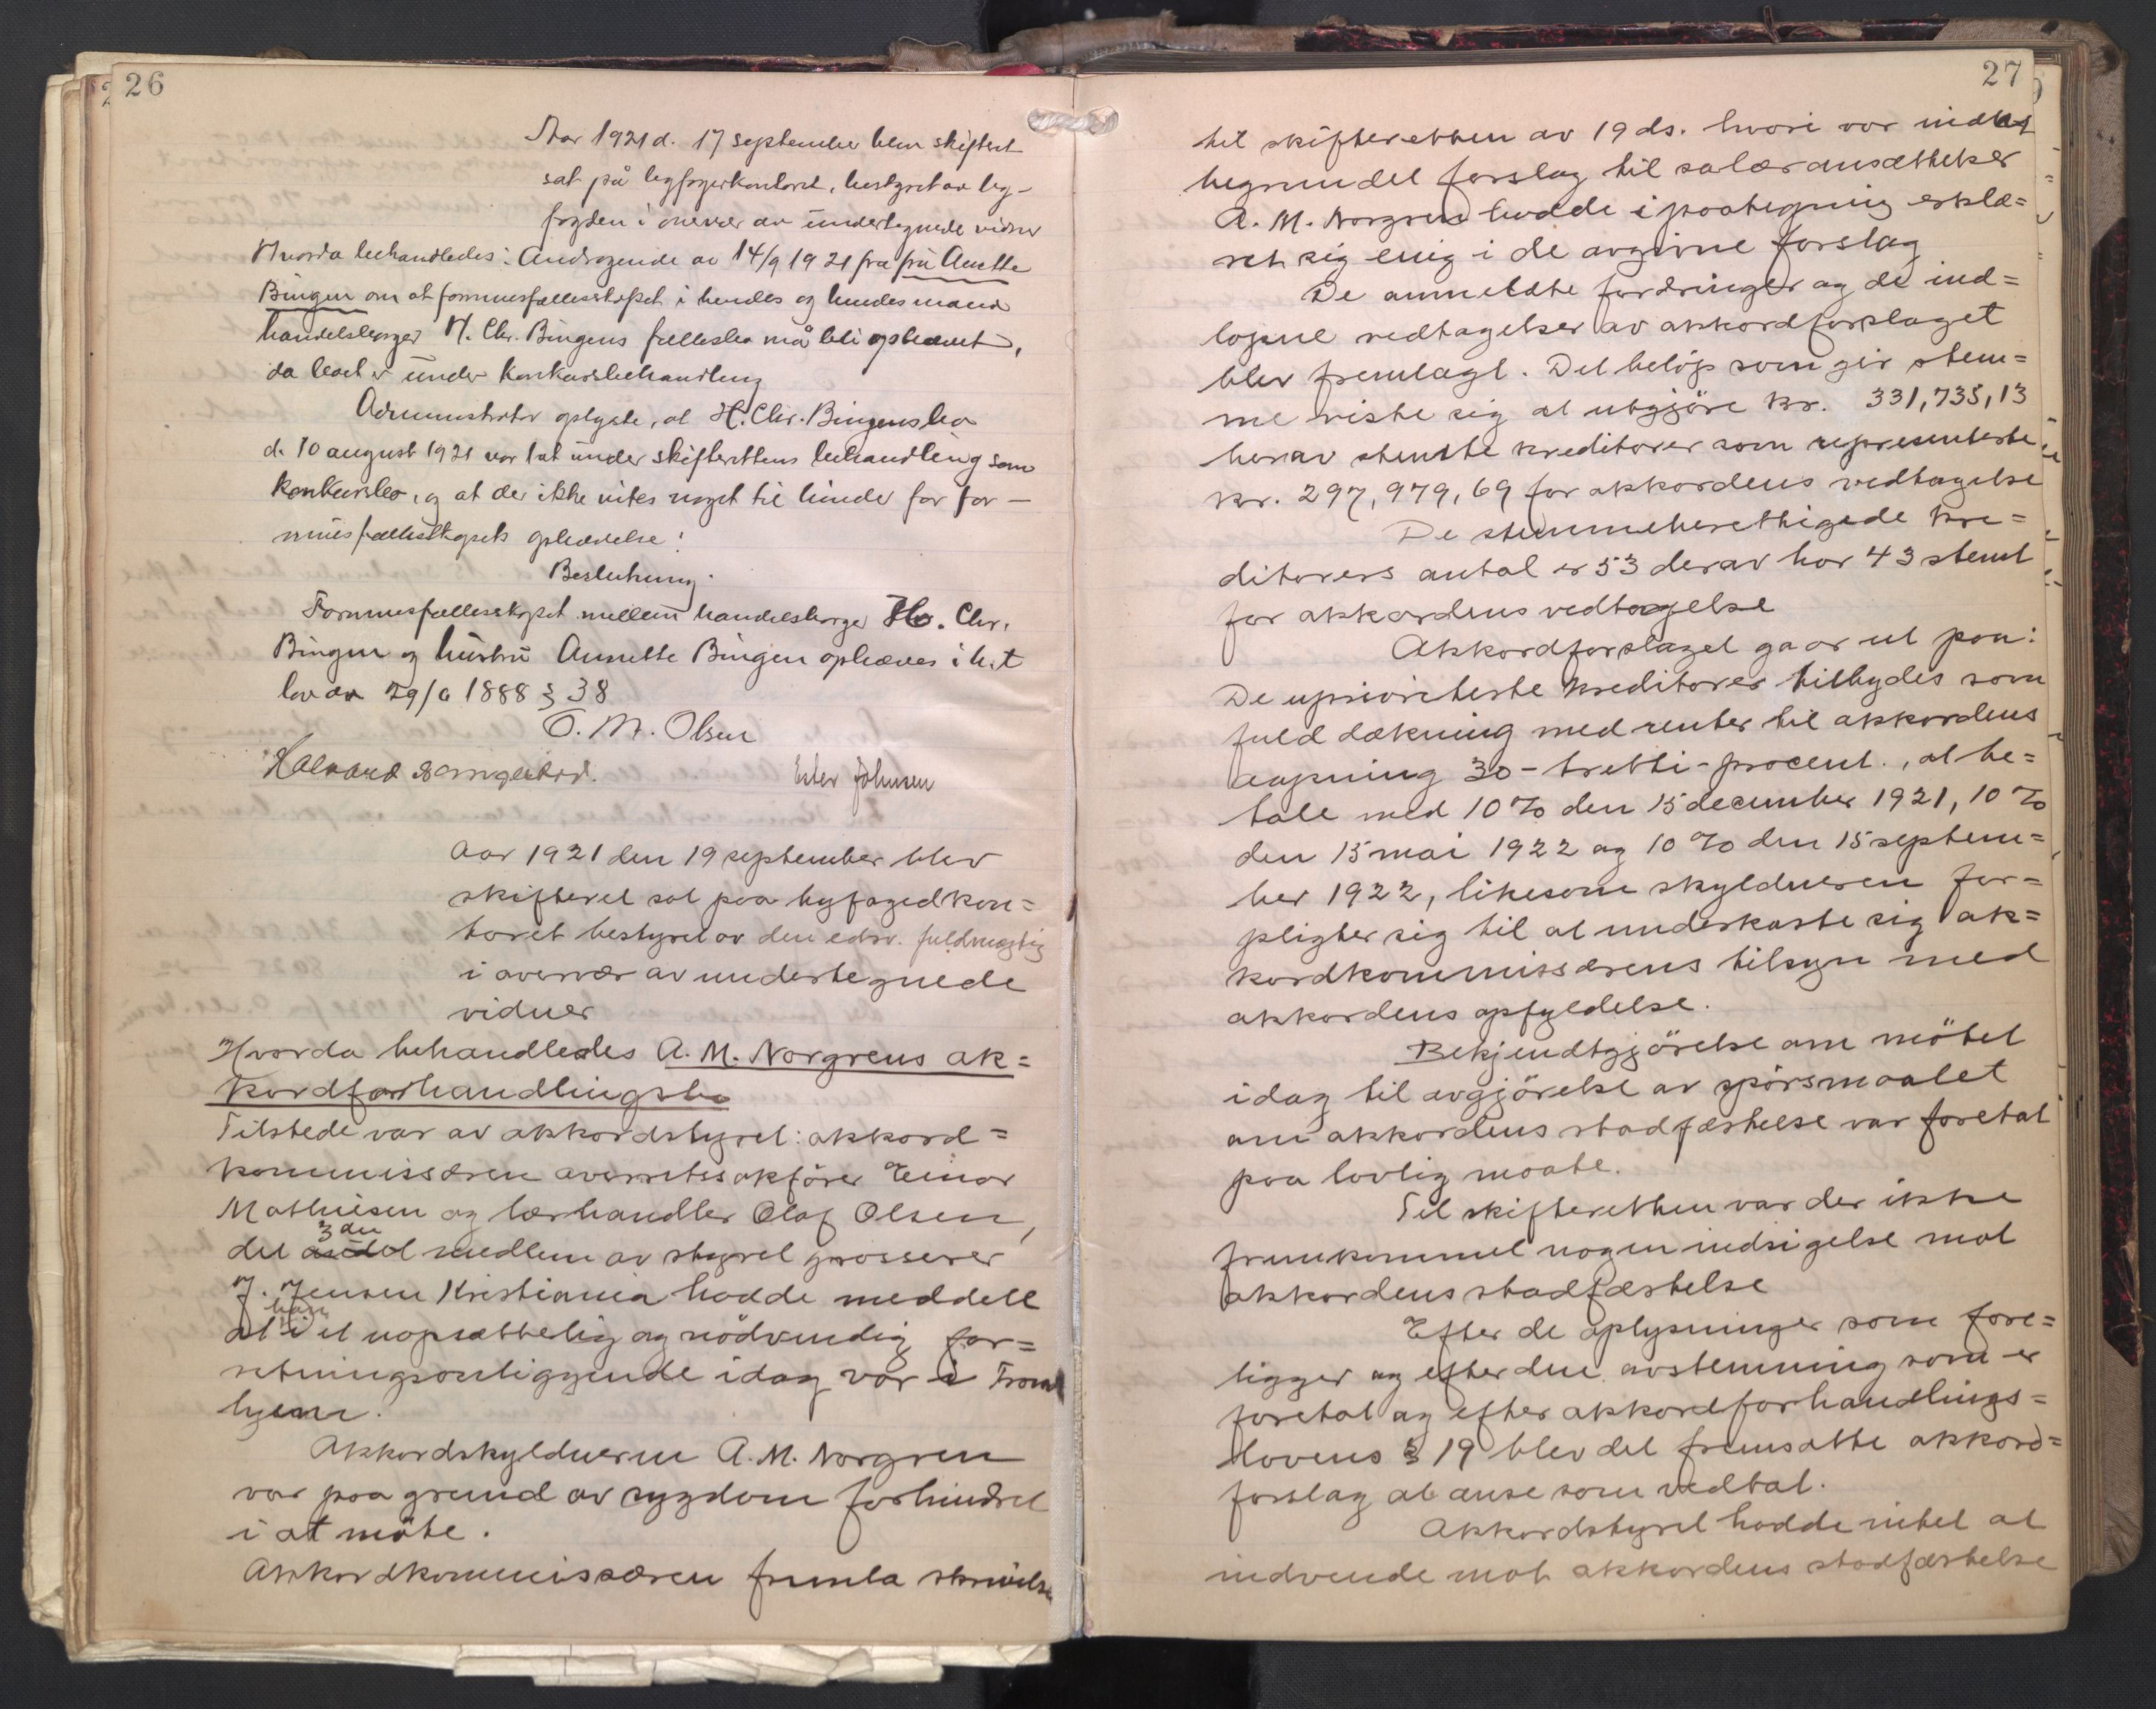 26
Aar 1921 d. 17 september blev skifteret
sat på byfogedkontoret, bestyret av by-
fogden i overvær av undertegnede vidner
Hvorda behandledes: Andragende av 14/9 1921 fra fru Anette
Bingen om at formuesfællesskapet i hendes og hendes mand
handelsborger H. Chr. Bingens fællesbo må bli ophævet,
da boet er under konkursbehandling
Administrator oplyste, at H. Chr. Bingens bo
d. 10 august 1921 var tat under skifterettens behandling som
konkursbo, og at der ikke vites noget til hinder for for-
muesfællesskapets ophævelse:
Beslutning:
Formuesfællesskapet mellem handelsborger H. Chr.
Bingen og hustru Annette Bingen ophæves i h.t
lov av 29/6 1888 § 38
O. M. Olsen
Halvard
Ester Johnsen
Aar 1921 den 19 september blev
skifteret sat paa byfogedkon=
toret bestyret av den edsv. fuldmægtig
i overvær av undertegnede
vidner
Hvorda behandledes A. M. Norgrens ak=
kordforhandlingsbo
Tilstede var av akkordstyret: akkord=
kommissæren overretssakfører Einar
Mathiesen og lærhandler Olaf Olsen,
3 die
det andet medlem av styret grosserer
J. Jensen Kristiania hadde meddelt
han
at i et uopsættelig og nødvendig for=
retningsanliggende idag var i Trond
hjem.
Akkordskyldneren A. M. Norgren
var paa grund av sygdom forhindret
i at møte.
Akkordkommissæren fremla skrivelse
27
til skifteretten av 19 ds. hvori var indtat
begrundet forslag til salæransættelser
A. M. Norgren hadde i paategning erklæ=
ret sig enig i de avgivne forslag
De anmeldte fordringer og de ind=
løpne vedtagelser av akkordforslaget
blev fremlagt. Det beløp som gir stem=
me viste sig at utgjøre kr. 331,735,13
herav stemte kreditorer som representerte
kr. 297,979,69 for akkordens vedtagelse
De stemmeberettigede kre=
ditorers antal er 53 derav har 43 stemt
for akkordens vedtagelse
Akkordforslaget gaar ut paa:
De upriorterte kreditorer tilbydes som
fuld dækning med renter til akkordens
aapning 30 - tretti - procent., at be=
tale med 10 % den 15 december 1921, 10 %
den 15 mai 1922 og 10 % den 15 septem=
ber 1922, likesom skyldneren for=
pligter sig til at underkaste sig ak=
kordkommissærens tilsyn med
akkordens opfyldelse.
Bekjendtgjørelse om møtet
idag til avgjørelse av spørsmaalet
om akkordens stadfæstelse var foretat
paa lovlig maate.
Til skifteretten var der ikke
fremkommet nogen indsigelse mot
akkordens stadfæstelse
Efter de oplysninger som fore=
ligger og efter den avstemning som er
foretat og efter akkordforhandlings=
lovens § 19 blev det fremsatte akkord=
forslag at anse som vedtat.
Akkordstyret hadde intet at
indvende mot akkordens stadfæstelse